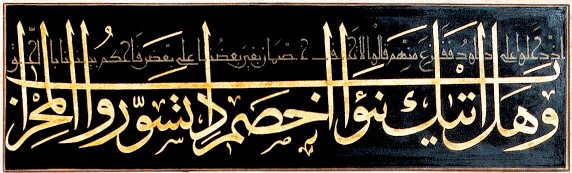 وهل اتيك نبؤا الخصم اذ تسوروا المحراب
اذ دخلوا على داود ففزع منهم قالوا لا تخف خصمان بغى بعضنا على بعض فاحكم بيننا بالحق